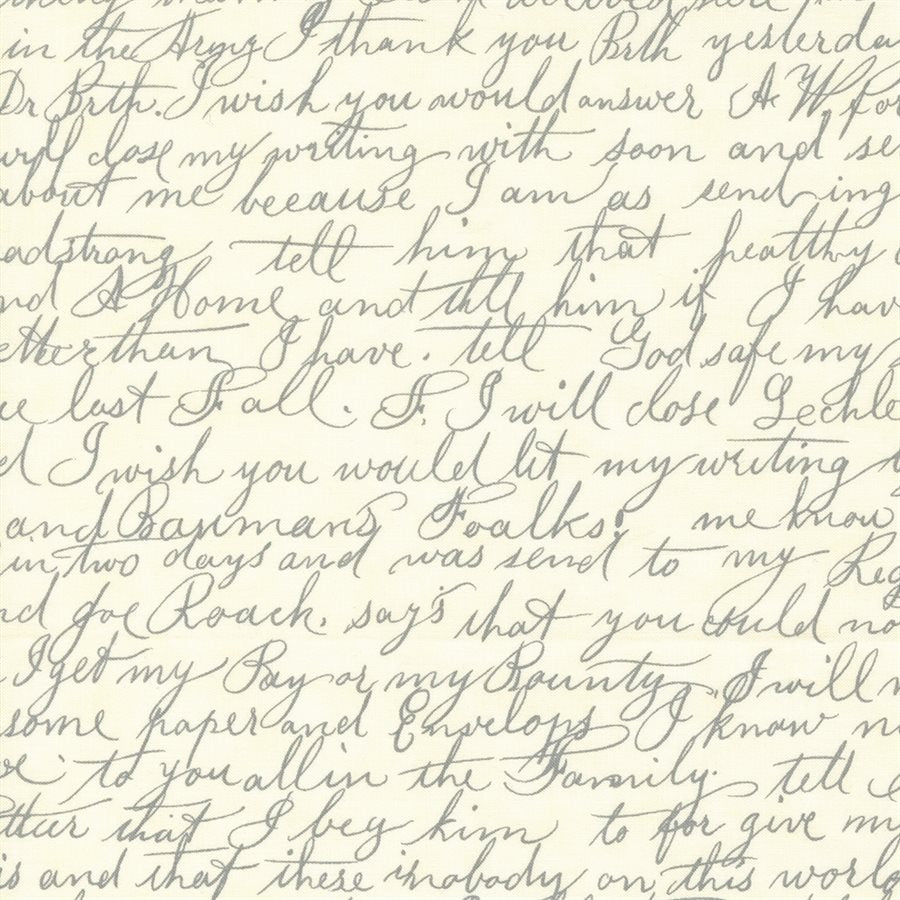 in the Army I thank you Brth yesterda
Dr Brth. I wish you would answer A W for
will close my writing with soon and se
about me beecause I am as send-ing
adstrong tell him that healthy
nd A Home and till him if I hav
etter than I have. tell God safe my
last Fall. F. I will close Lechle
d I wish you would lit my writing
and Baumans Foalks! me know
in two days and was send to my Reg
nd Joe Roack. say's that you could no
I get my Pay or my Bounty. I will
some paper and Envelops I know n
to you all in the Family. tell
that I beg him to for give my
is and that there is nobody on this world